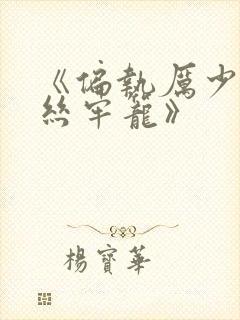 《偏執厲少
絲牢籠》
楊寶華